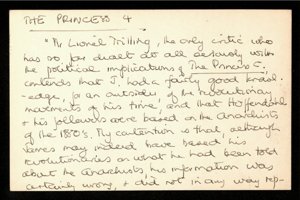 THE PRINCESS 4
"Mr Lionel Trilling, the only critic who
has so far dealt at all seriously with
the political implications of The Princess C.
contends that J. had a fairly good knowl-
-edge, for an outsider, of the revolutionary
movements of his time, and that Hoffendahl
& his followers were based on the Anarchists
of the 1880's. My contention is that, although
James may indeed have based his
revolutionaries on what he had been told
about the Anarchists, his information was
certainly wrong, & did not in any way rep-